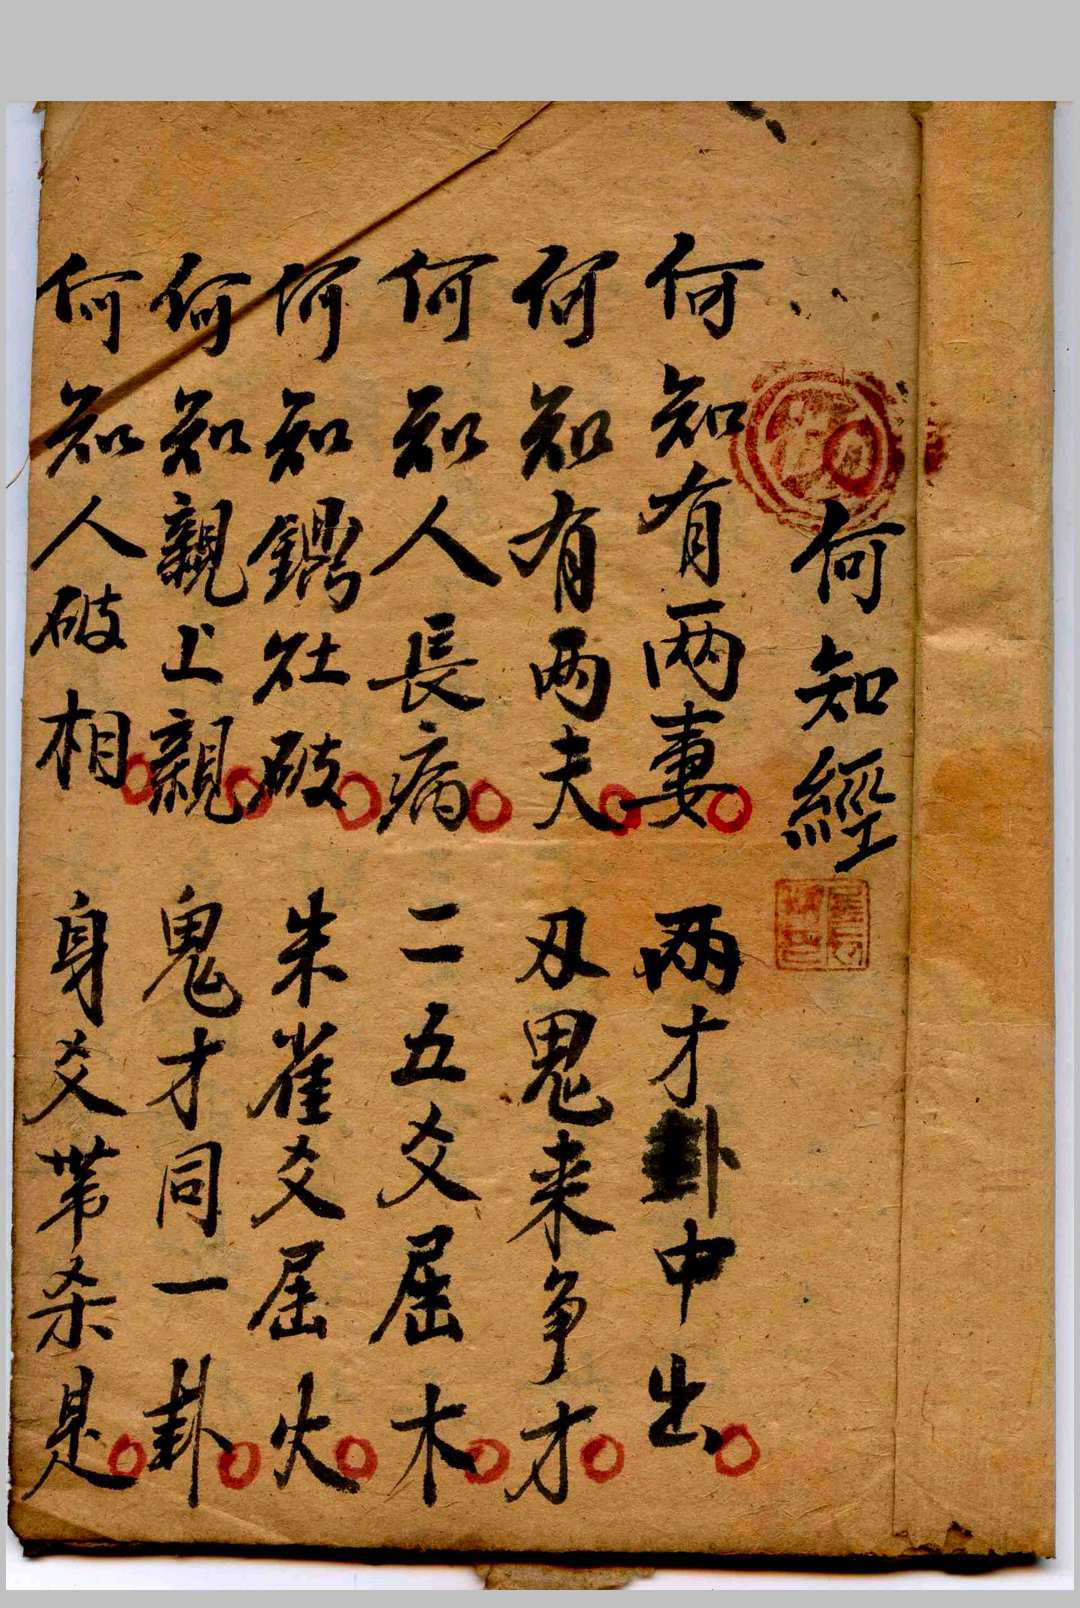 何知經
何知有两妻 兩才卦中出
何知有两夫 刄鬼来争才
何知人長病 二五爻屈木
何知鍋灶破 朱雀爻屈火
何知親上親 鬼才同一卦
何知人破相 身爻帯杀是